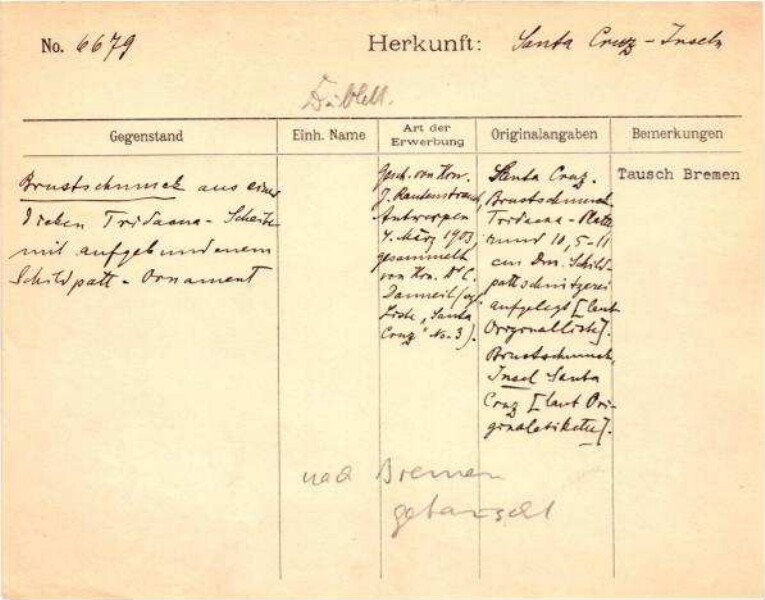 No. 6679
Herkunft: Santa Cruz - Inseln
Dublett.
Gegenstand
Einh. Name
Art der Erwerbung
Originalangaben
Bemerkungen
Brustschmuck aus einer
dicken Tridacna - Scheibe
mit aufgebundenem
Schildpatt - Ornament
Gesch. von Hrn.
J. Rautenstrauch,
Antwerpen
4. März 1903,
gesammelt
von Hrn. Dr. C.
Danneil (cf.
Liste „Santa
Cruz" No. 3).
Santa Cruz.
Brustschmuck
Tridacna - Platte
rund 10,5-11
cm Dm. Schild-
pattschnitzerei
aufgelegt [laut
Originalliste].
Brustschmuck,
Insel Santa
Cruz [laut Ori-
ginaletikette].
Tausch Bremen
nach Bremen
getauscht